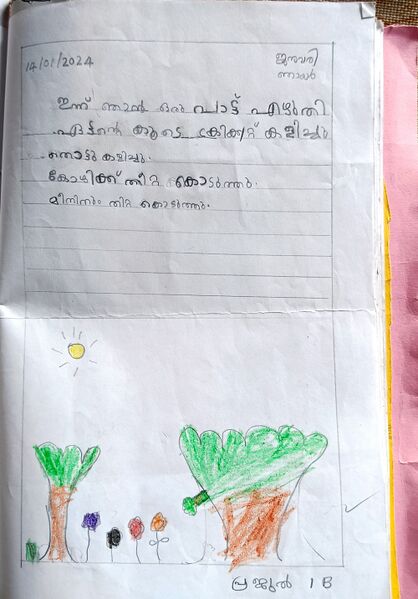 14/01/2024
ജനുവരി
ഞായർ
ഇന്ന് ഞാൻ ഒരു പാട്ട് എഴുതി
ഏട്ടൻ്റെ കൂടെ ക്രിക്കറ്റ് കളിച്ചു
തൊട്ടു കളിച്ചു.
കോഴിക്ക് തീറ്റ കൊടുത്തു.
മീനിനും തീറ്റ കൊടുത്തു.
പ്രജുൽ 1 B